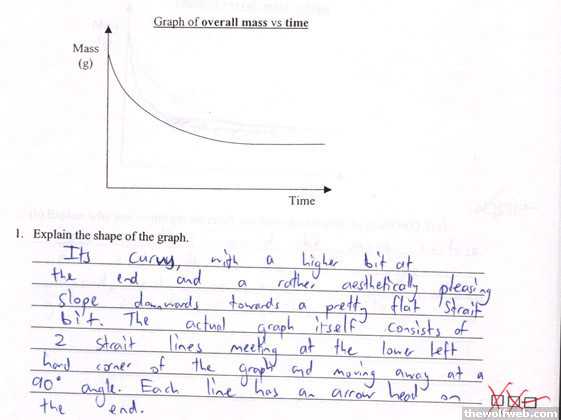 Graph of overall mass vs time
Mass
(g)
Time
1. Explain the shape of the graph.
Its curvy, with a higher bit at
the end and a rather aesthetically pleasing
slope downwards towards a pretty flat strait
bit. The actual graph itself consists of
2 strait lines meeting at the lower left
hand corner of the graph and moving away at a
90° angle. Each line has an arrow head on
the end.
thewolfweb.com